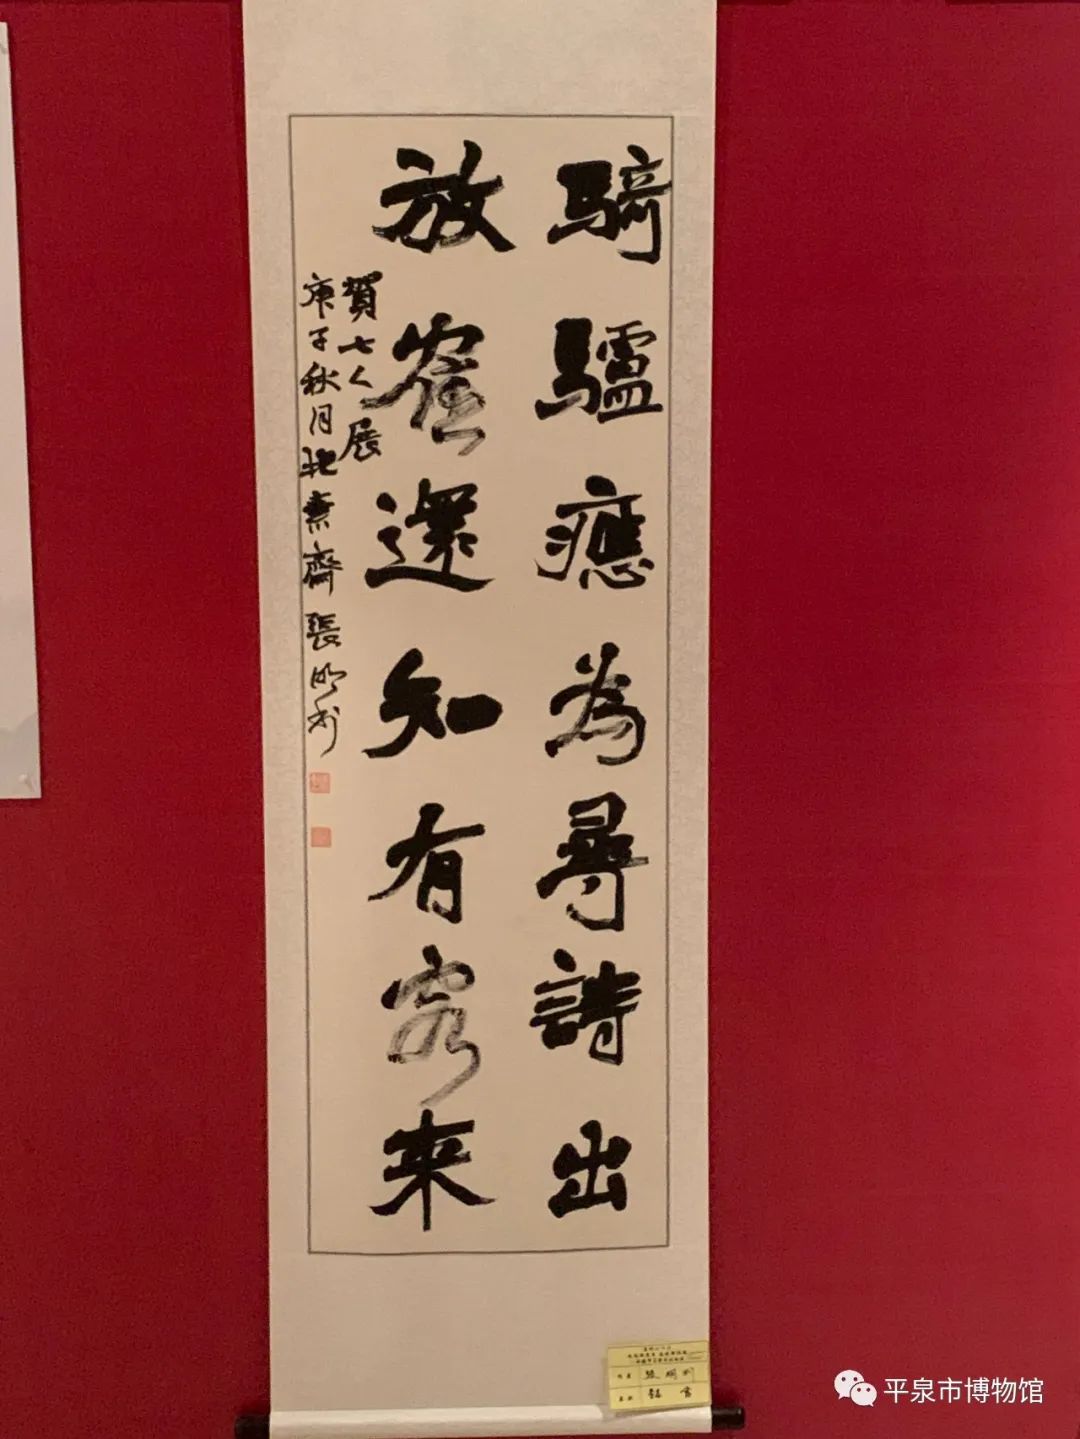 騎驢應為尋詩出
放寉還知有客来
賀七人展
庚子秋月抱素齋張明利
張明利
平泉市博物馆